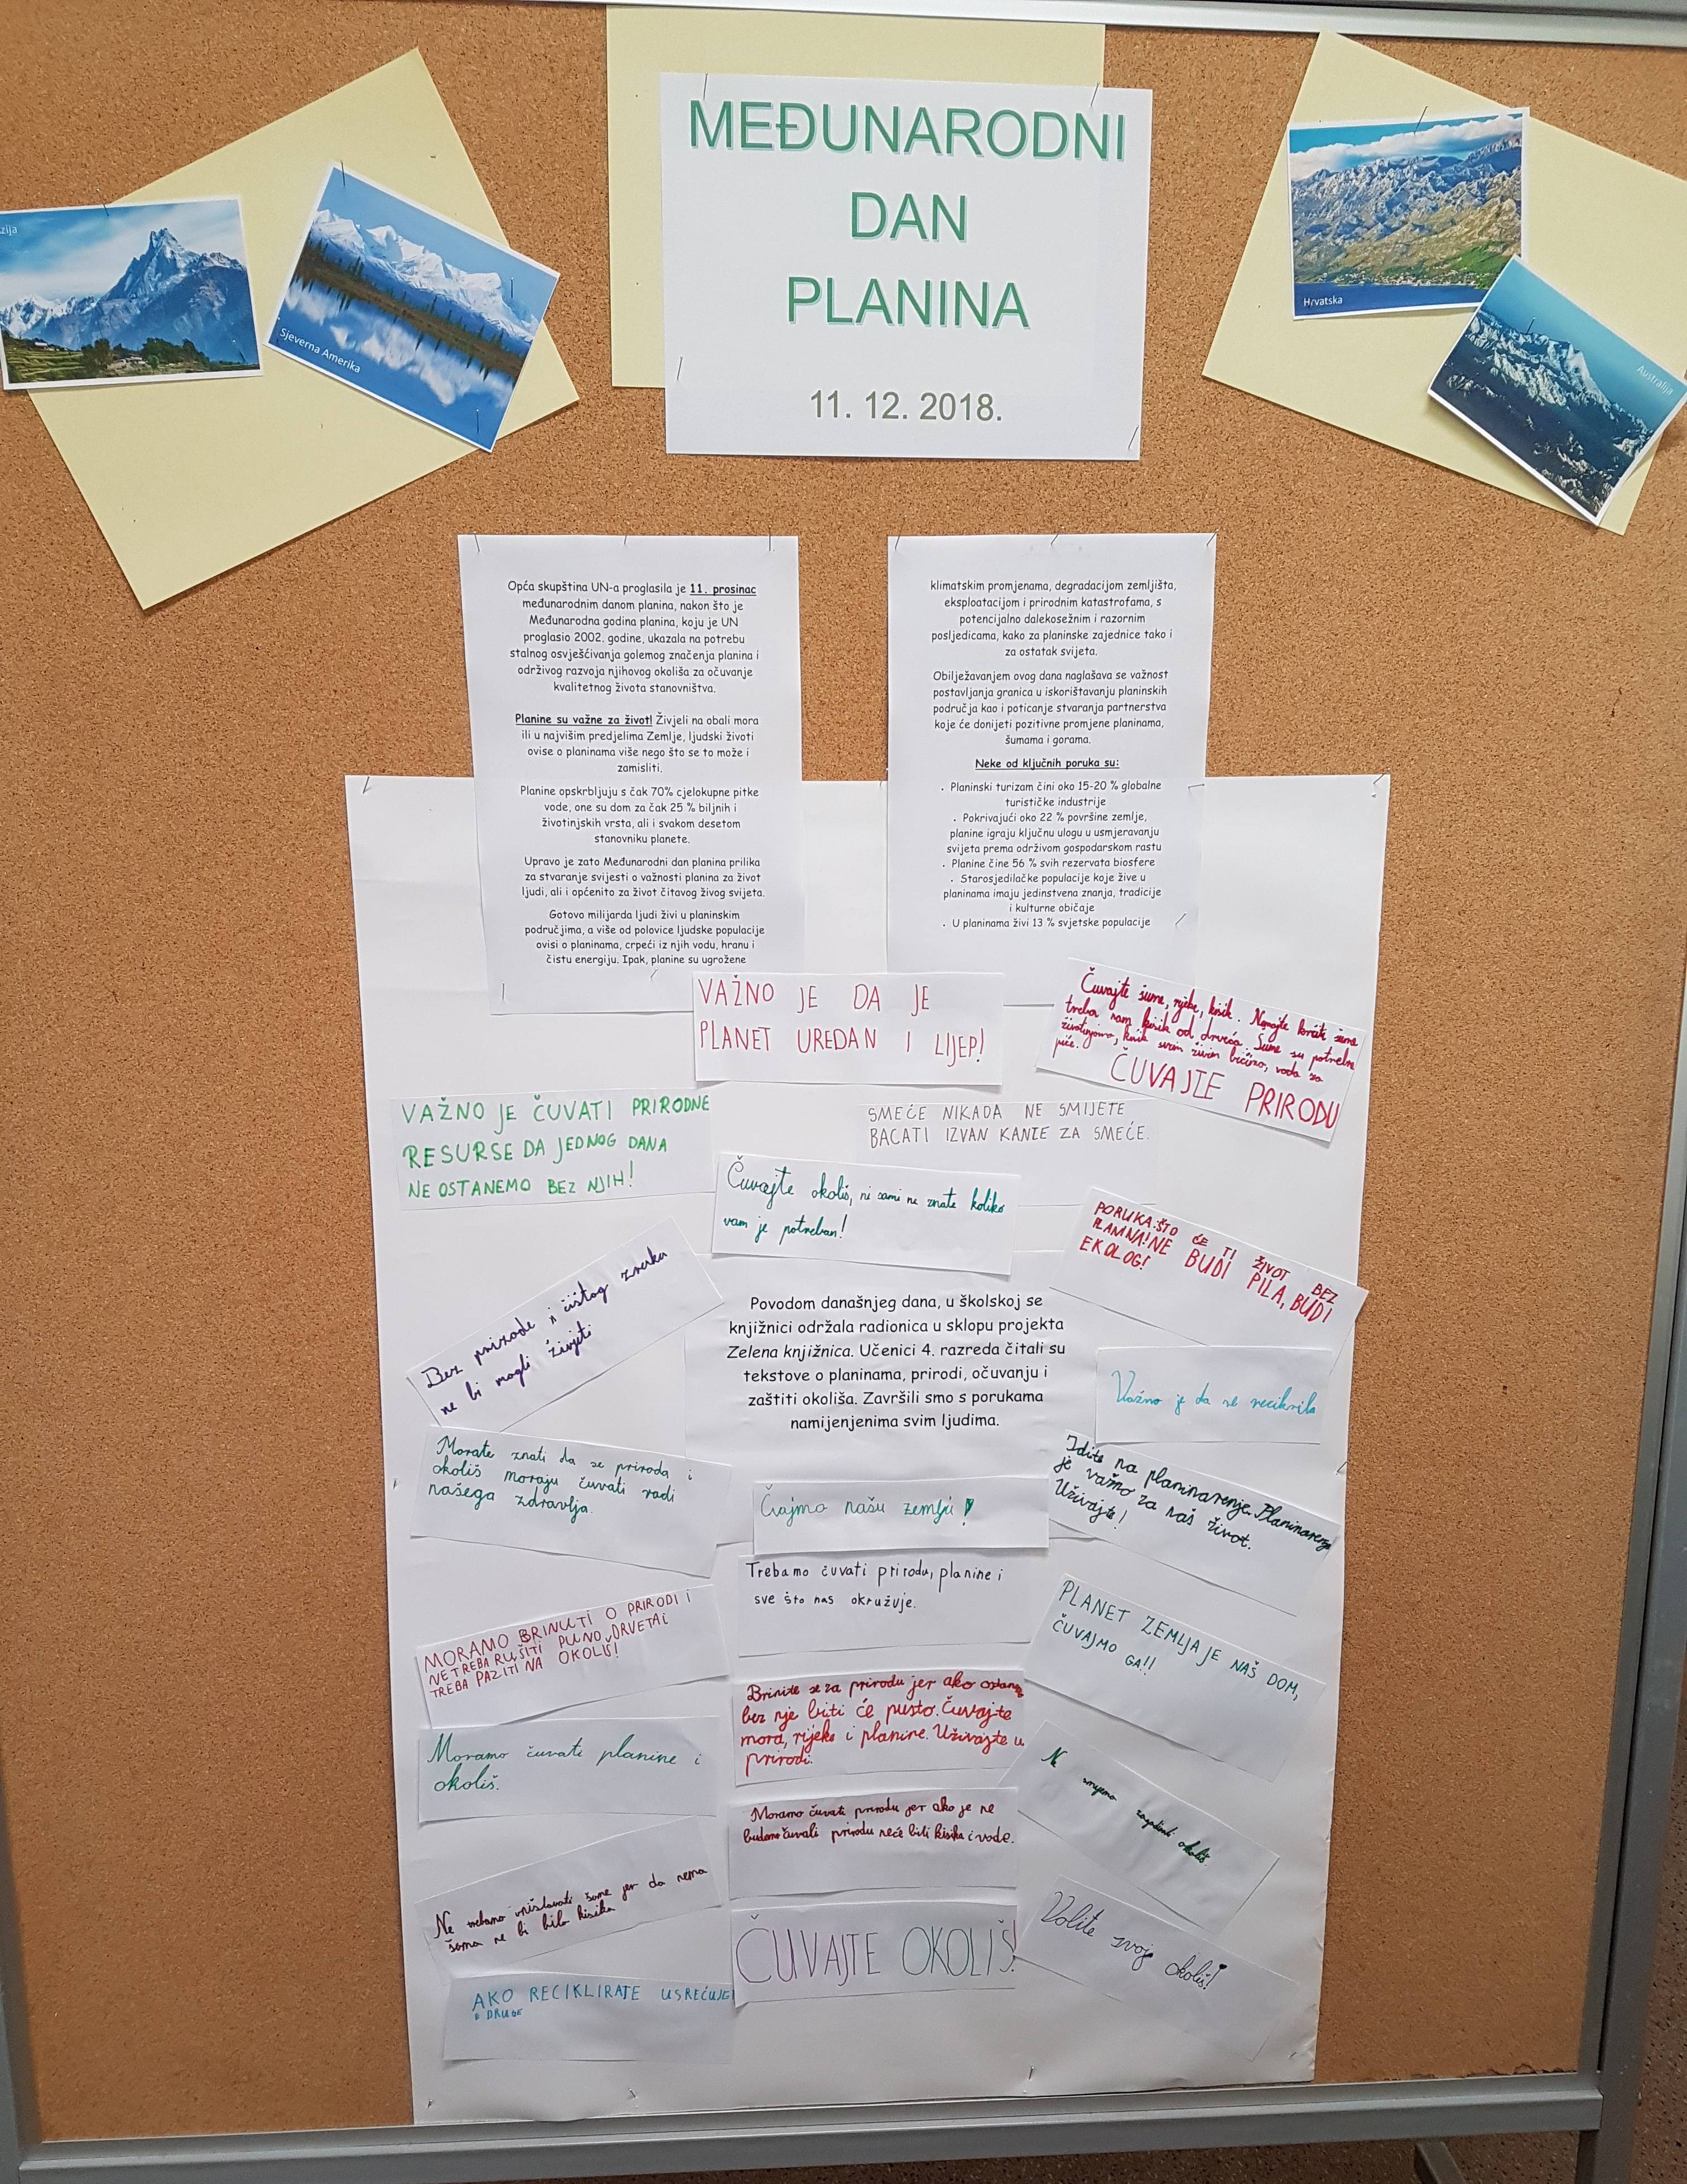 MEĐUNARODNI
DAN
PLANINA
11. 12. 2018.
zija
Sjeverna Amerika
Hrvatska
Australija
Opća skupština UN-a proglasila je 11. prosinac
međunarodnim danom planina, nakon što je
Međunarodna godina planina, koju je UN
proglasio 2002. godine, ukazala na potrebu
stalnog osvješćivanja golemog značenja planina i
održivog razvoja njihovog okoliša za očuvanje
kvalitetnog života stanovništva.
Planine su važne za život! Živjeli na obali mora
ili u najvišim predjelima Zemlje, ljudski životi
ovise o planinama više nego što se to može i
zamisliti.
Planine opskrbljuju s čak 70% cjelokupne pitke
vode, one su dom za čak 25 % biljnih i
životinjskih vrsta, ali i svakom desetom
stanovniku planete.
Upravo je zato Međunarodni dan planina prilika
za stvaranje svijesti o važnosti planina za život
ljudi, ali i općenito za život čitavog živog svijeta.
Gotovo milijarda ljudi živi u planinskim
područjima, a više od polovice ljudske populacije
ovisi o planinama, crpeći iz njih vodu, hranu i
čistu energiju. Ipak, planine su ugrožene
klimatskim promjenama, degradacijom zemljišta,
eksploatacijom i prirodnim katastrofama, s
potencijalno dalekosežnim i razornim
posljedicama, kako za planinske zajednice tako i
za ostatak svijeta.
Obilježavanjem ovog dana naglašava se važnost
postavljanja granica u iskorištavanju planinskih
područja kao i poticanje stvaranja partnerstva
koje će donijeti pozitivne promjene planinama,
šumama i gorama.
Neke od ključnih poruka su:
. Planinski turizam čini oko 15-20 % globalne
turističke industrije
. Pokrivajući oko 22 % površine zemlje,
planine igraju ključnu ulogu u usmjeravanju
svijeta prema održivom gospodarskom rastu
. Planine čine 56 % svih rezervata biosfere
. Starosjedilačke populacije koje žive u
planinama imaju jedinstvena znanja, tradicije
i kulturne običaje
. U planinama živi 13 % svjetske populacije
VAŽNO JE DA JE
PLANET UREDAN I LIJEP!
Čuvajte šume, rijeke, kisik. Nemojte krčiti šume
treba nam kisik od drveća. Šume su potrebne
životinjama, kisik svim živim bićima, voda za
piće.
ČUVAJTE PRIRODU
VAŽNO JE ČUVATI PRIRODNE
RESURSE DA JEDNOG DANA
NE OSTANEMO BEZ NJIH!
SMEĆE NIKADA NE SMIJETE
BACATI IZVAN KANTE ZA SMEĆE.
Čuvajte okoliš, ni sami ne znate koliko
vam je potreban!
PORUKA: ŠTO ĆE TI ŽIVOT BEZ
PLANINA! NE BUDI PILA, BUDI
EKOLOG!
Bez prirode i čistog zraka
ne bi mogli živjeti
Povodom današnjeg dana, u školskoj se
knjižnici održala radionica u sklopu projekta
Zelena knjižnica. Učenici 4. razreda čitali su
tekstove o planinama, prirodi, očuvanju i
zaštiti okoliša. Završili smo s porukama
namijenjenima svim ljudima.
Važno je da se
Morate znati da se priroda i
okoliš moraju čuvati radi
našega zdravlja.
Idite na planinarenje. Planinarenje
je važno za naš život.
Uživajte!
našu zemlju!
Trebamo čuvati prirodu, planine i
sve što nas okružuje.
MORAMO BRINUTI O PRIRODI I
NETREBA RUŠITI PUNO DRVETA I
TREBA PAZITI NA OKOLIŠ!
PLANET ZEMLJA JE NAŠ DOM,
ČUVAJMO GA!!
Brinite se za prirodu jer ako ostanemo
bez nje biti će pusto. Čuvajte
mora, rijeke i planine. Uživajte u
prirodi.
Moramo čuvati planine i
okoliš.
Ne smijemo zagađivati okoliš.
Moramo čuvati prirodu jer ako je ne
budemo čuvali prirodu neće biti kisika i vode.
Ne trebamo uništavati šume jer da nema
šuma ne bi bilo kisika
ČUVAJTE OKOLIŠ!
Volite svoj okoliš!
AKO RECIKLIRATE USREĆUJETE
DRUGE